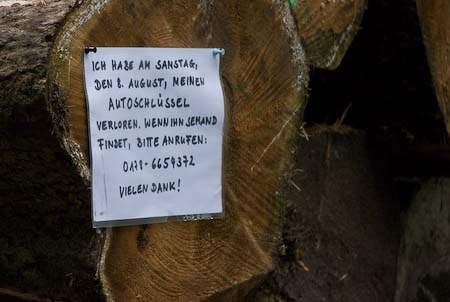 ICH HABE AM SAMSTAG,
DEN 8. AUGUST, MEINEN
AUTOSCHLÜSSEL
VERLOREN. WENN IHN JEMAND
FINDET, BITTE ANRUFEN:
0178-6654372
VIELEN DANK!